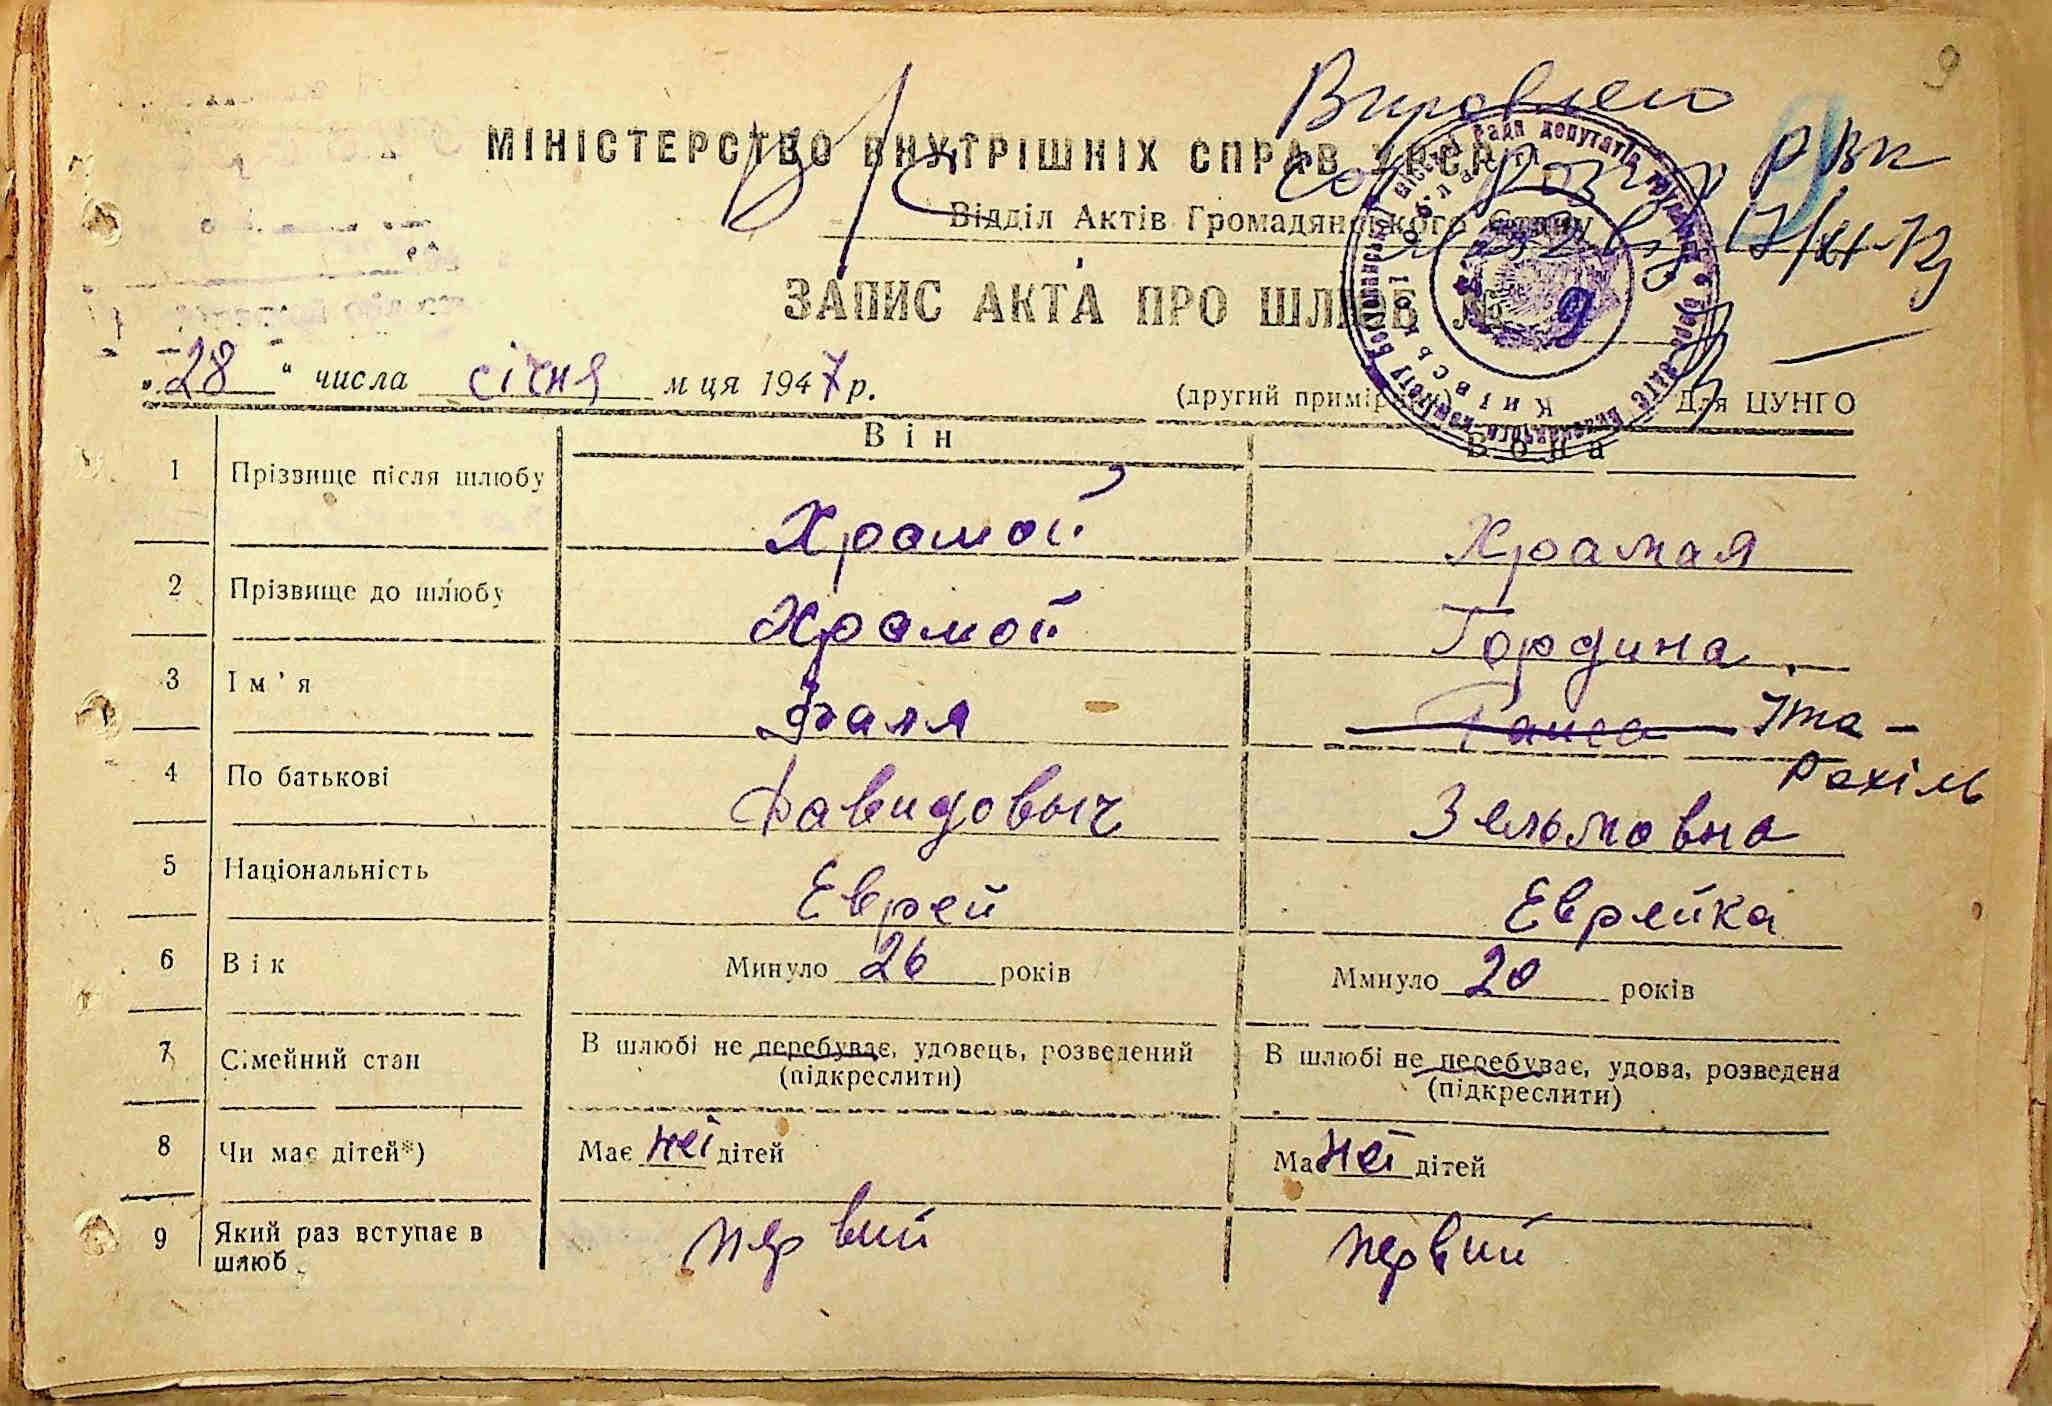 9
Виправлено
МІНІСТЕРСТВО ВНУТРІШНІХ СПРАВ УРСР
Відділ Актів Громадянського Стану
ЗАПИС АКТА ПРО ШЛЮБ № 9
„28“ числа січня м ця 1947 р.
(другий примірник) Для ЦУНГО
Він Вона
1 Прізвище після шлюбу Храмой Храмая
2 Прізвище до шлюбу Храмой Гордина
3 Ім'я Фаля Раиса Іта-
Рахіль
4 По батькові Давидовыч Зельмовна
5 Національність Еврей Еврейка
6 Вік Минуло 26 років Ммнуло 20 років
7 Сімейний стан В шлюбі не перебуває, удовець, розведений В шлюбі не перебуває, удова, розведена
(підкреслити) (підкреслити)
8 Чи має дітей*) Має неї дітей Має неї дітей
9 Який раз вступає в первий первий
шлюб